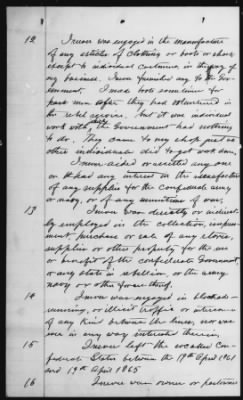 12 I never was engaged in the manufacture
of any articles of clothing or boots or shoes
except to individual customers in the way of
my business. I never furnished any to the Gov-
ernment. I made boots sometimes for
post men after they had volunteered in
the rebel service, but it was individual
work with which the Government had nothing
to do. They came to my shop just as
other individuals did to get work done.
I never aided or assisted any one
or had any interest in the manufacture
of any supplies for the confederate army
or navy, or of any munitions of war.
13 I never was directly or indirect-
ly employed in the collection, impress-
ment, purchase or sale of any stores,
supplies or other property for the use
or benefit of the confederate Government
or any state in rebellion, or the army
navy or other force thereof.
14 I never was engaged in blockade
running, or illicit traffic or intercourse
of any kind between the lines, nor was
ever in any way interested therein.
15 I never left the so-called Con-
federate States between the 19th April 1861
and 19th April 1865
16 I never was owner or part owner